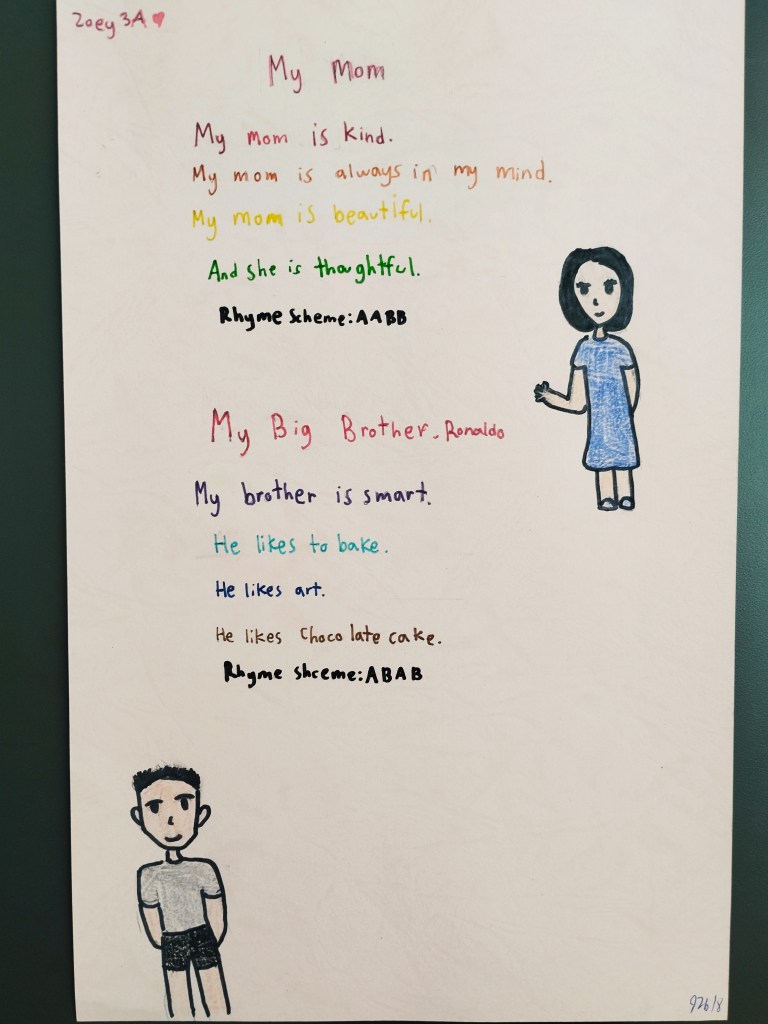 Zoey 3A
My Mom
My mom is kind.
My mom is always in my mind.
My mom is beautiful.
And she is thoughtful.
Rhyme Scheme: AABB
My Big Brother, Ronaldo
My brother is smart.
He likes to bake.
He likes art.
He likes chocolate cake.
Rhyme Shceme: ABAB